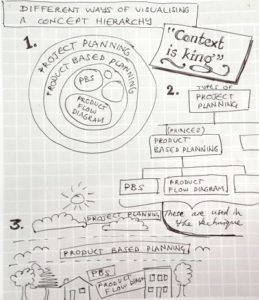 DIFFERENT WAYS OF VISUALISING
A CONCEPT HIERARCHY
1.
PROJECT PLANNING
PRODUCT BASED PLANNING
PBS
PRODUCT
FLOW
DIAGRAM
"Context
is king"
2.
TYPES OF
PROJECT
PLANNING
(PRINCE2)
PRODUCT
BASED PLANNING
PBS
PRODUCT
FLOW DIAGRAM
These are used in
the technique
3.
PROJECT PLANNING
PRODUCT BASED PLANNING
PBS
PRODUCT
FLOW DIAG